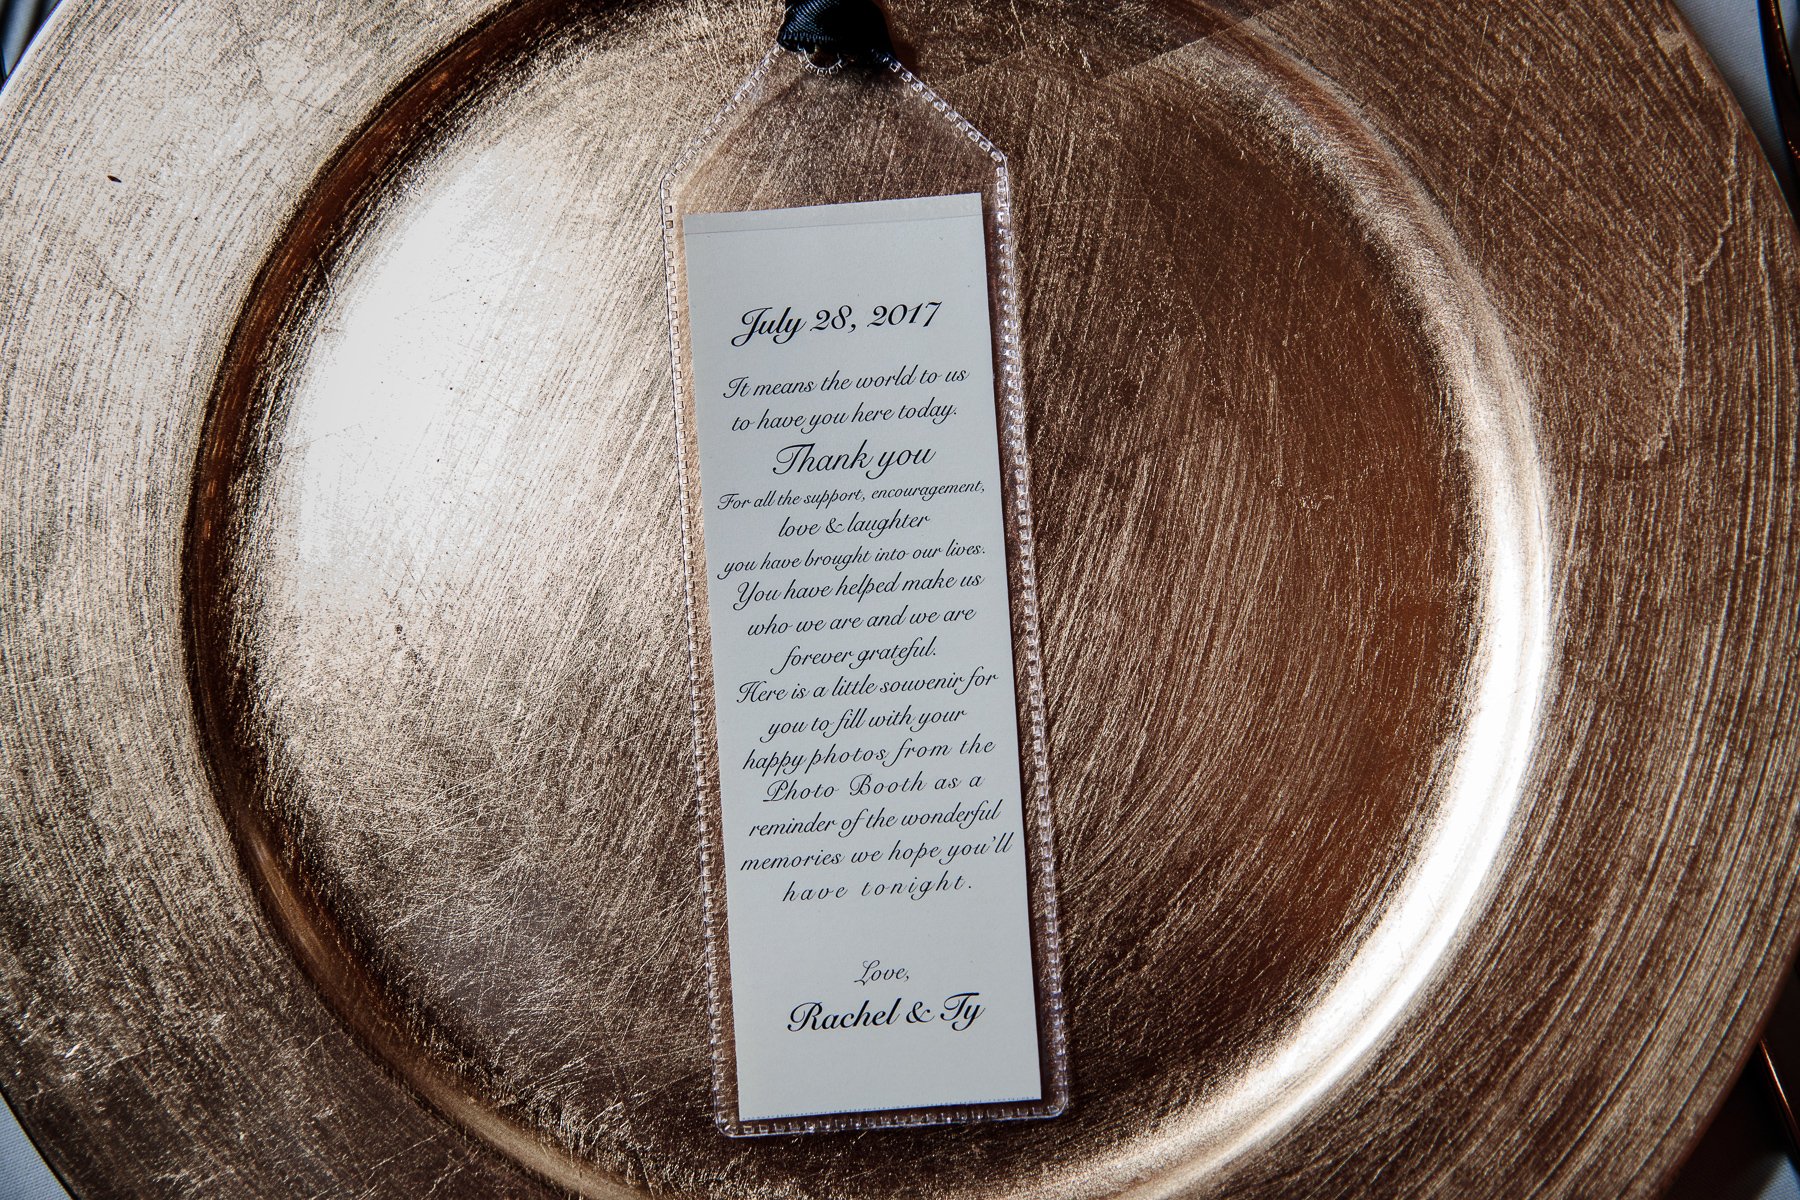 July 28, 2017
It means the world to us
to have you here today.
Thank you
For all the support, encouragement,
love & laughter
you have brought into our lives.
You have helped make us
who we are and we are
forever grateful.
Here is a little souvenir for
you to fill with your
happy photos from the
Photo Booth as a
reminder of the wonderful
memories we hope you'll
have tonight.
Love,
Rachel & Ty